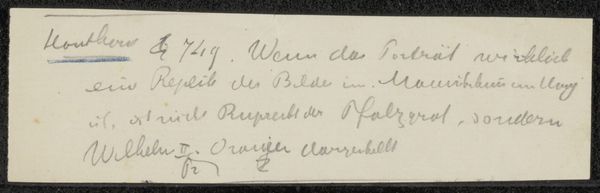 Honthorst 749. Wenn das Porträt wirklich
eine Replik des Bildes im Mauritshuis im Haag
ist, ist nicht Ruprecht der Pfalzgraf, sondern
Wilhelm II. Oranien dargestellt